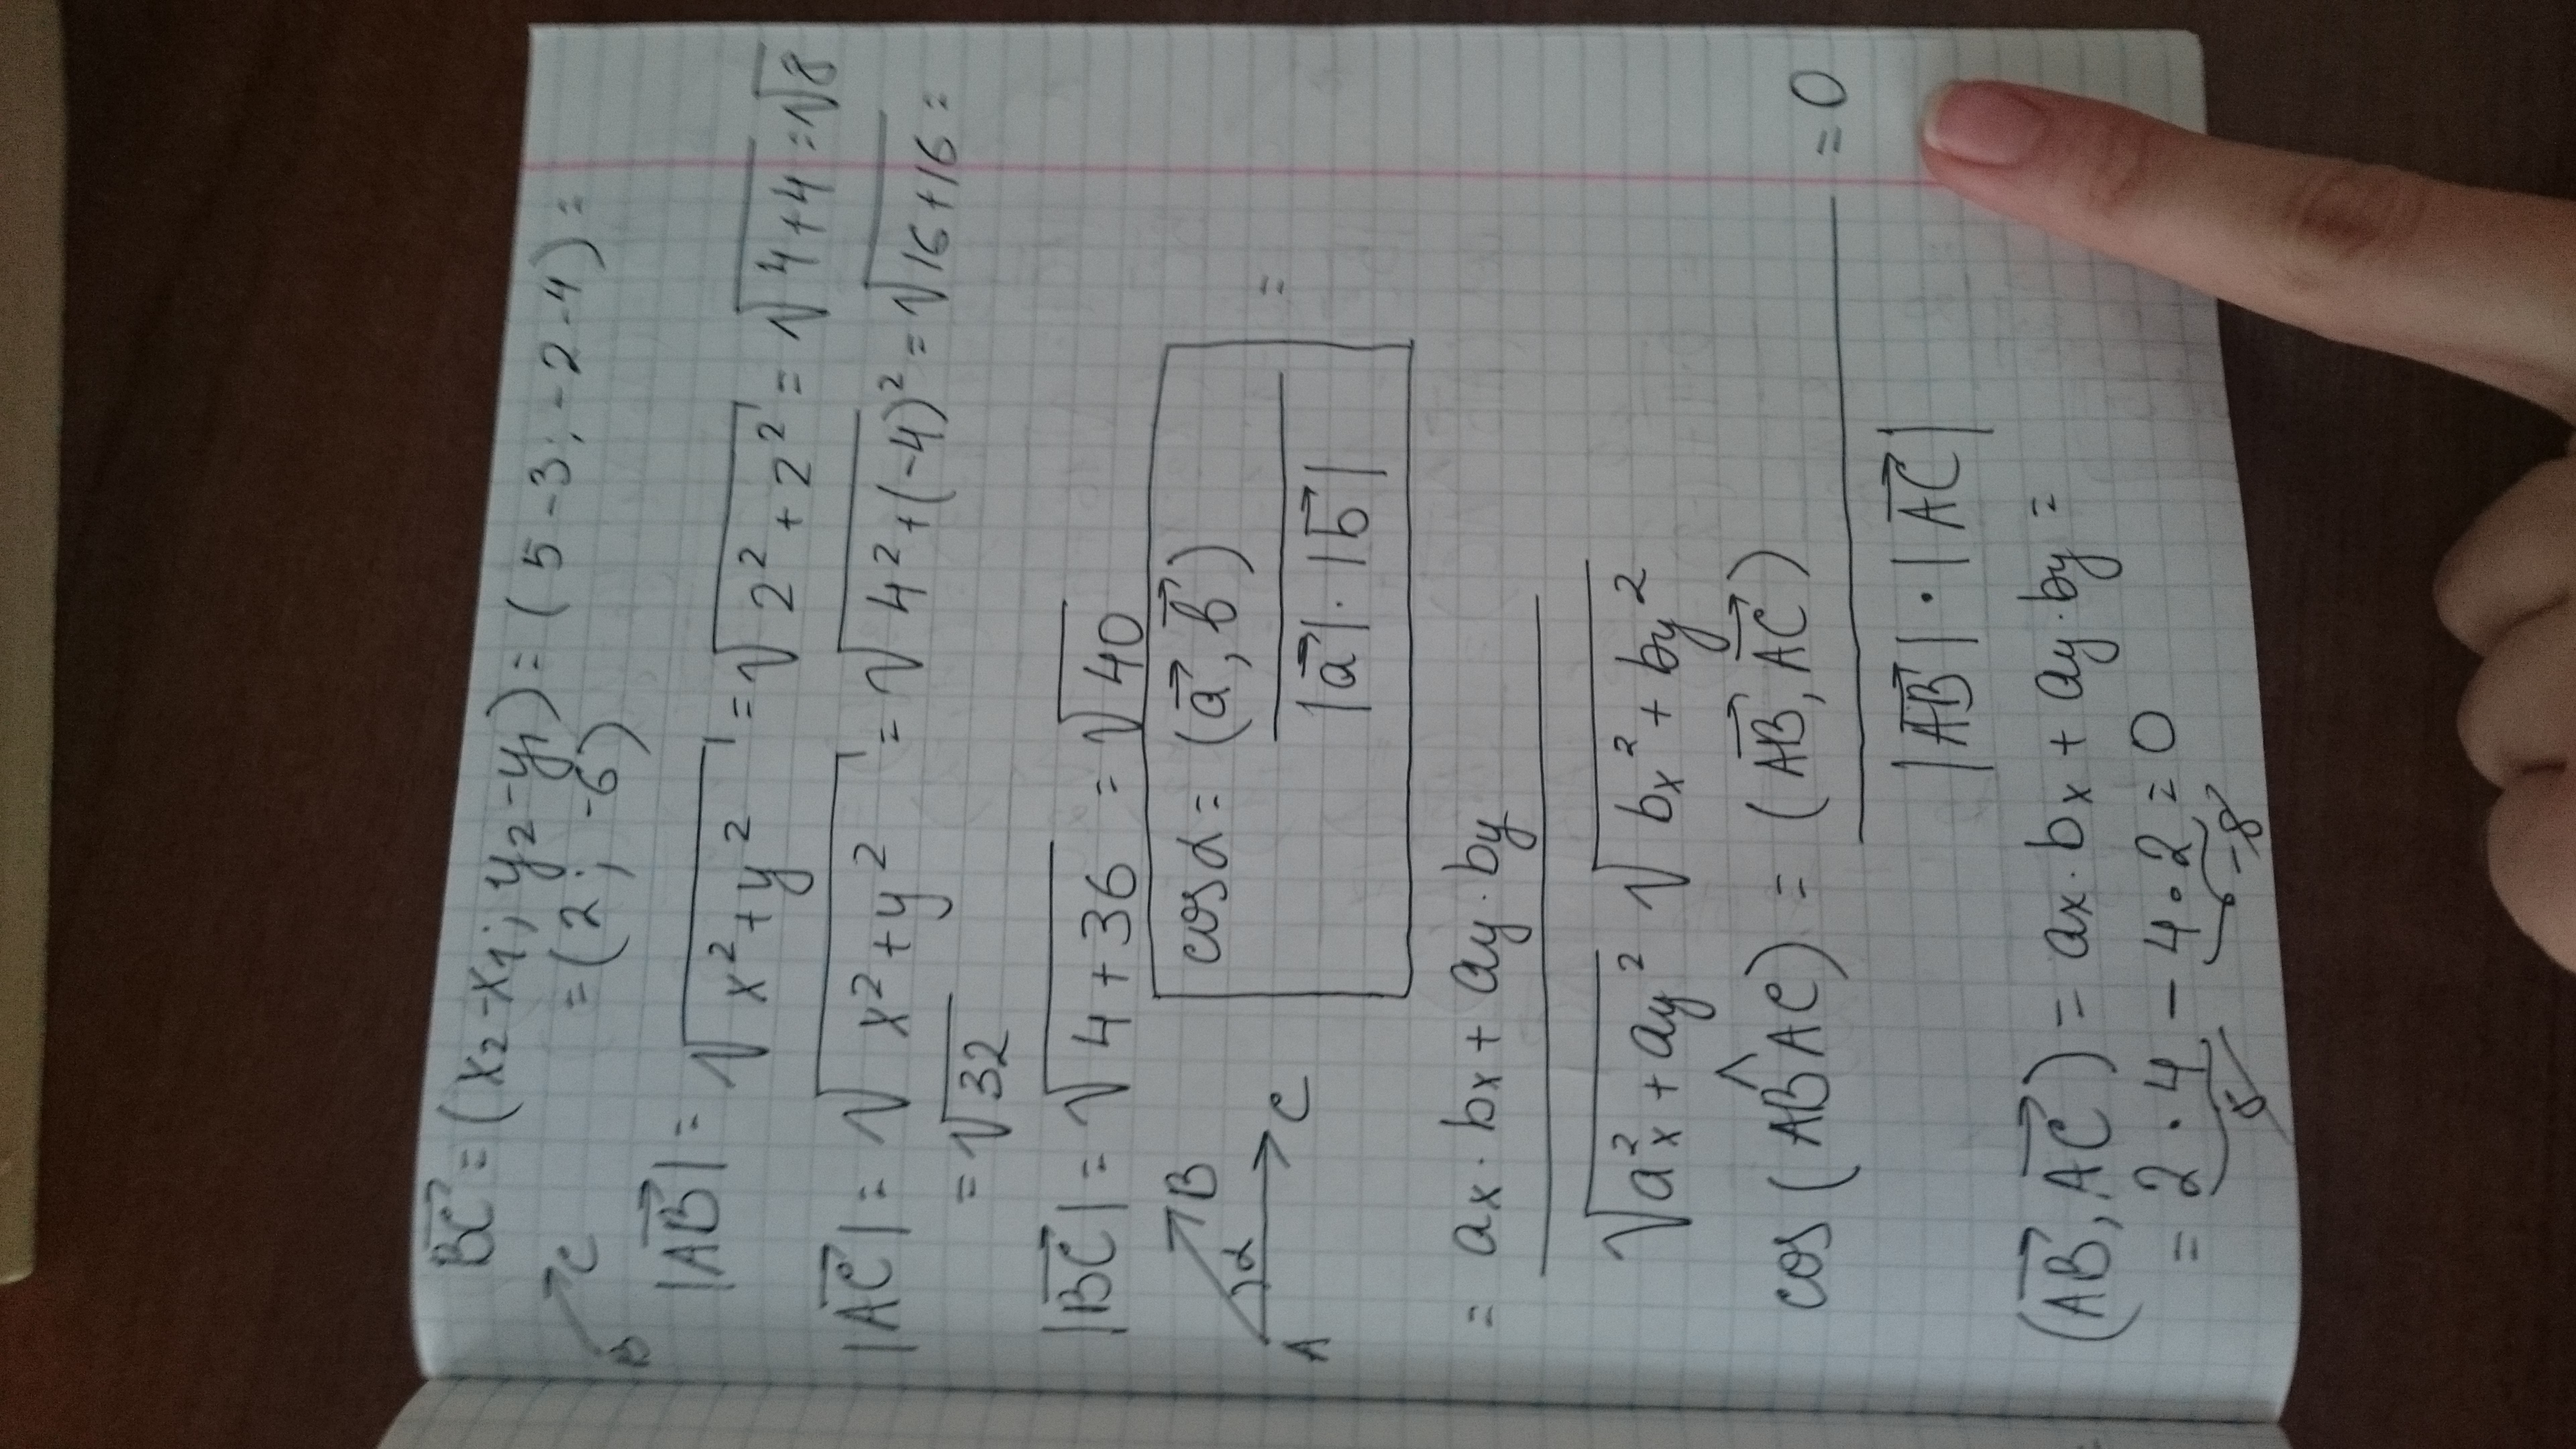 BC = (x₂-x₁; y₂-y₁) = (5-3; -2-4) =
= (2; -6)
B C
|AB| = √x²+y² = √2²+2² = √4+4 = √8
|AC| = √x²+y² = √4²+(-4)² = √16+16 =
= √32
|BC| = √4+36 = √40
A B C α
cosα = (a, b)
|a|·|b|
=
= ax·bx + ay·by
√ax²+ay² √bx²+by²
cos(AB^AC) = (AB, AC) = 0
|AB|·|AC|
(AB, AC) = ax·bx + ay·by =
= 2·4 - 4·2 = 0
8 -8